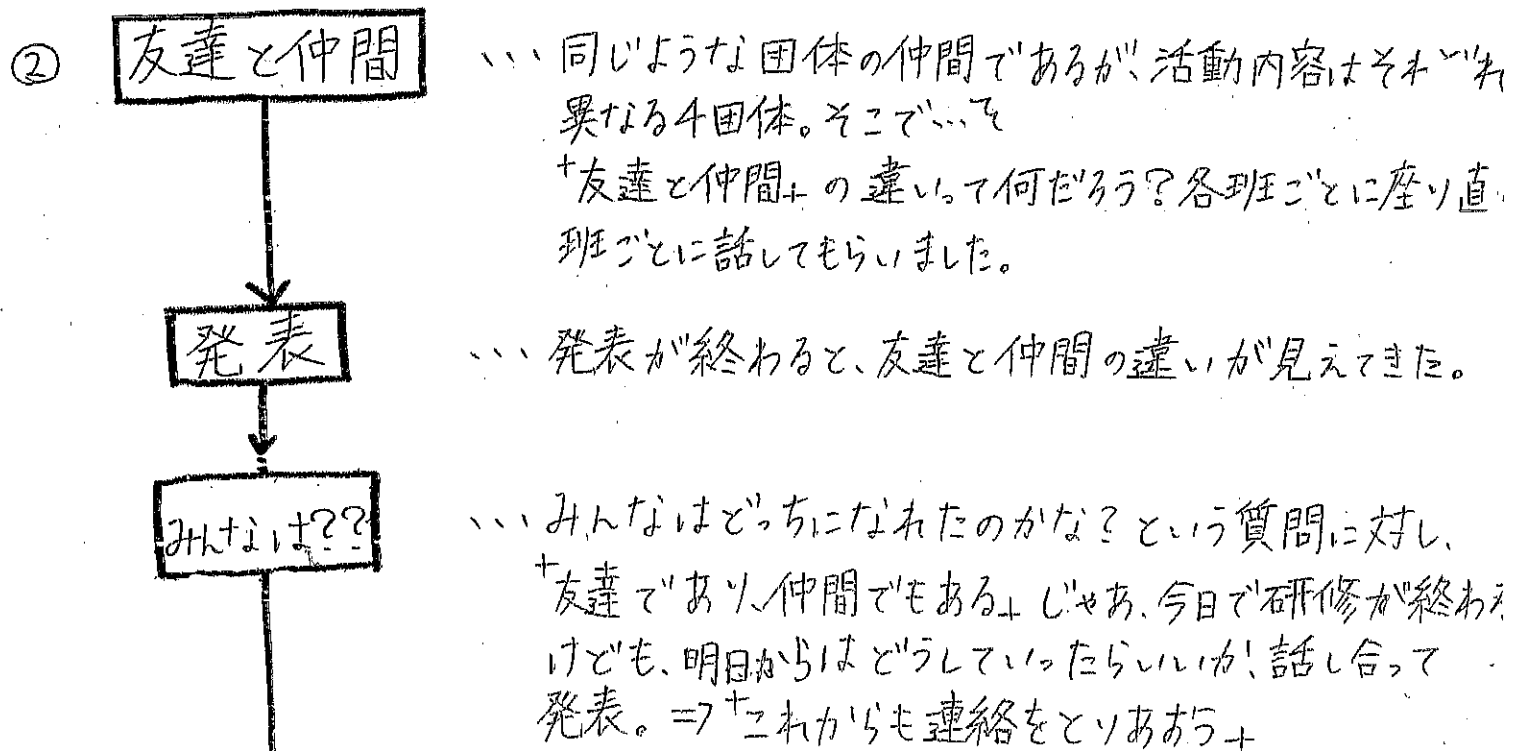 ② 友達と仲間 … 同じような団体の仲間であるが、活動内容はそれぞれ
異なる4団体。そこで…
+友達と仲間+ の違いって何だろう？各班ごとに座り直
班ごとに話してもらいました。
発表 … 発表が終わると、友達と仲間の違いが見えてきた。
みんなは？？ … みんなはどっちになれたのかな？という質問に対し、
+友達であり、仲間でもある+ じゃあ、今日で研修が終わる
けども、明日からはどうしていったらいいか！話し合って
発表。⇒ +これからも連絡をとりあおう+